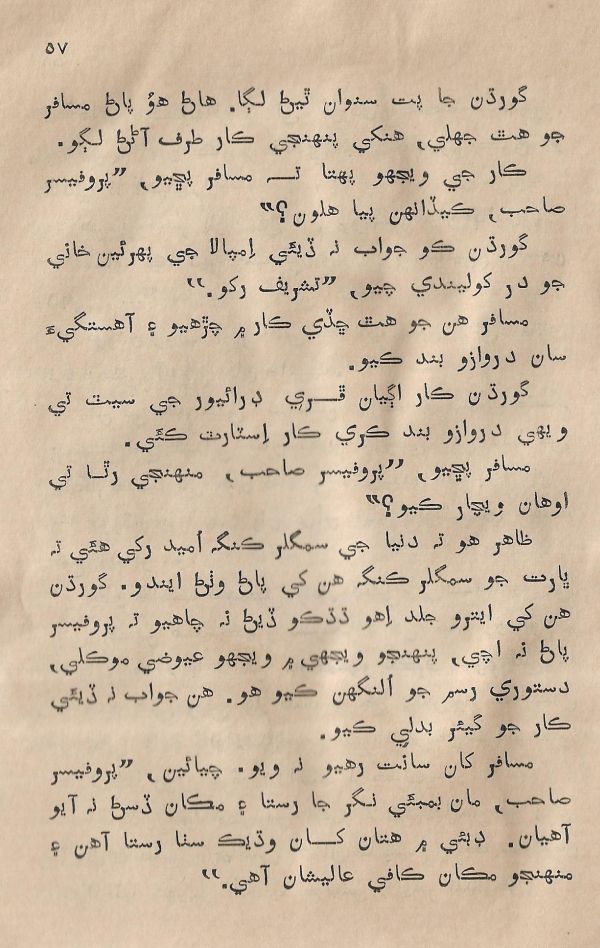 ٥٧
گورڌن جا پٽ سنوان ٿيڻ لڳا. هاڻ هوُ پاڻ مسافر
جو هٿ جهلي، هنکي پنهنجي ڪار طرف آڻڻ لڳو.
ڪار جي ويجهو پهتا تــه مسافر پڇيو، ”پروفيسر
صاحب، ڪيڏانهن پيا هلون؟“
گورڌن ڪو جواب نہ ڏيئي اِمپالا جي پهرئين خاني
جو در کوليندي چيو، ”تشريف رکو.“
مسافر هن جو هٿ ڇڏي ڪار ۾ چڙهيو ۽ آهستگيءَ
سان دروازو بند ڪيو.
گورڌن ڪار اڳيان ڦــري ڊرائيور جي سيٽ تي
ويهي دروازو بند ڪري ڪار اِسٽارٽ ڪئي.
مسافر پڇيو، ”پروفيسر صاحب، منهنجي رٿـا تي
اوهان ويچار ڪيو؟“
ظاهر هو تہ دنيا جي سمگلر ڪنگہ اُميد رکي هئي تہ
ڀارت جو سمگلر ڪنگہ هن کي پاڻ وٺڻ ايندو. گورڌن
هن کي ايترو جلد اِهو ڌڌڪو ڏيڻ نٿہ چاهيو تہ پروفيسر
پاڻ نہ اچي، پنهنجو ويجهي ۾ ويجهو عيوضي موڪلي،
دستوري رسم جو اُلنگهن ڪيو هو. هن جواب نہ ڏيئي
ڪار جو گيئر بدلي ڪيو.
مسافر کان سانت رهيو نہ ويو. چيائين، ”پروفيسر
صاحب، مان بمبئي نگر جا رستا ۽ مڪان ڏسڻ نہ آيو
آهيان. دبئي ۾ هتان کــان وڌيڪ سٺا رستا آهن ۽
منهنجو مڪان ڪافي عاليشان آهي.“